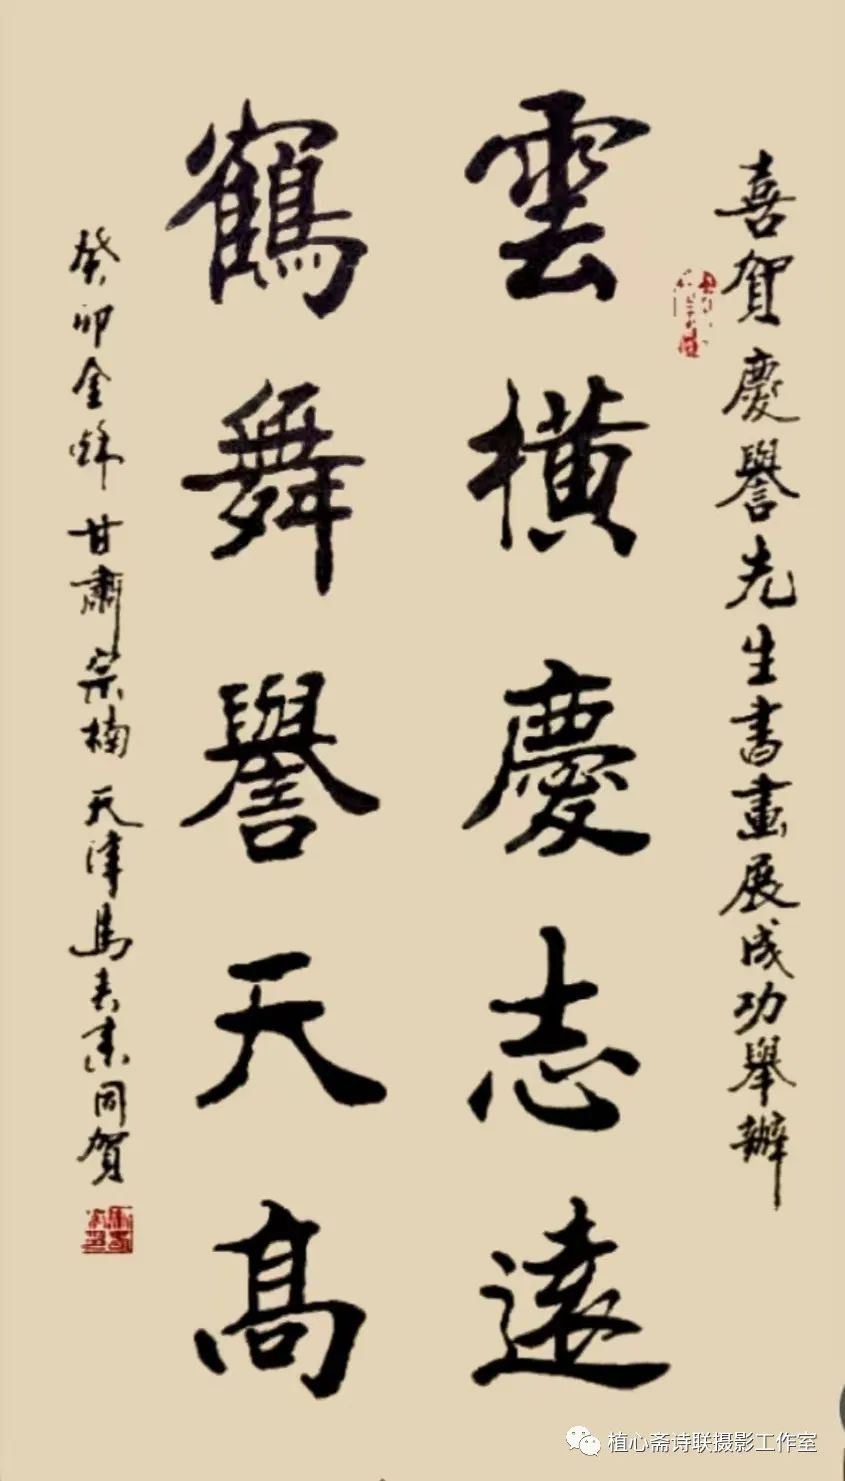 喜賀慶譽先生書畫展成功舉辦
雲橫慶志遠
鶴舞譽天高
癸卯金秋甘肅宗楠天津馬春來同賀
植心斋诗联摄影工作室